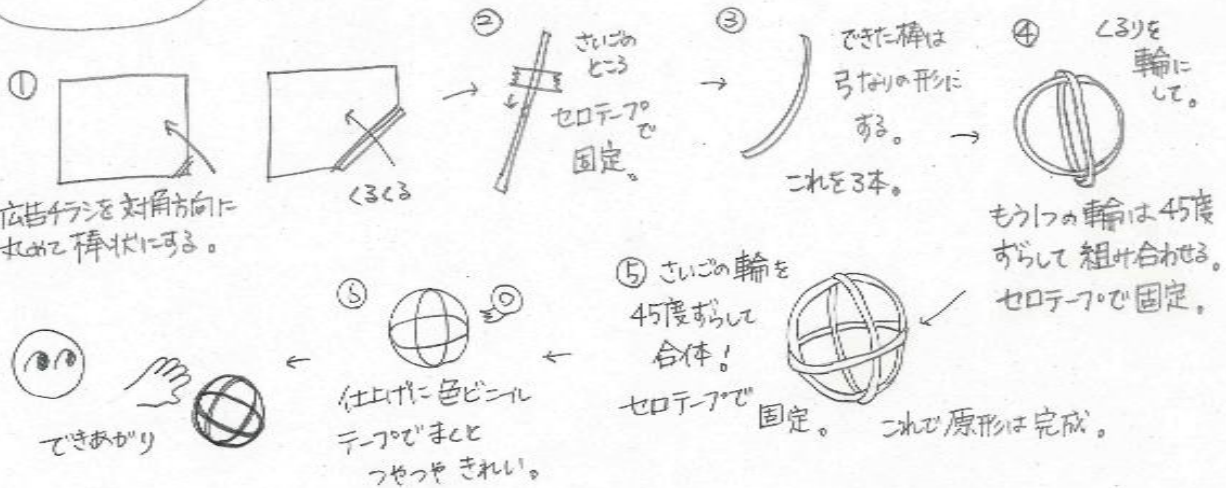 ①
広告チラシを対角方向に
丸めて棒状にする。
くるくる
→
②
さいごの
ところ
セロテープ
で
固定。
→
③
できた棒は
弓なりの形に
する。
これを3本。
→
④
くるりを
輪に
して。
もう1つの輪は45度
ずらして組み合わせる。
セロテープで固定。
⑤さいごの輪を
45度ずらして
合体!
セロテープで
固定。
これで原形は完成。
←
⑥
仕上げに色ビニール
テープでまくと
つやつやきれい。
←
できあがり